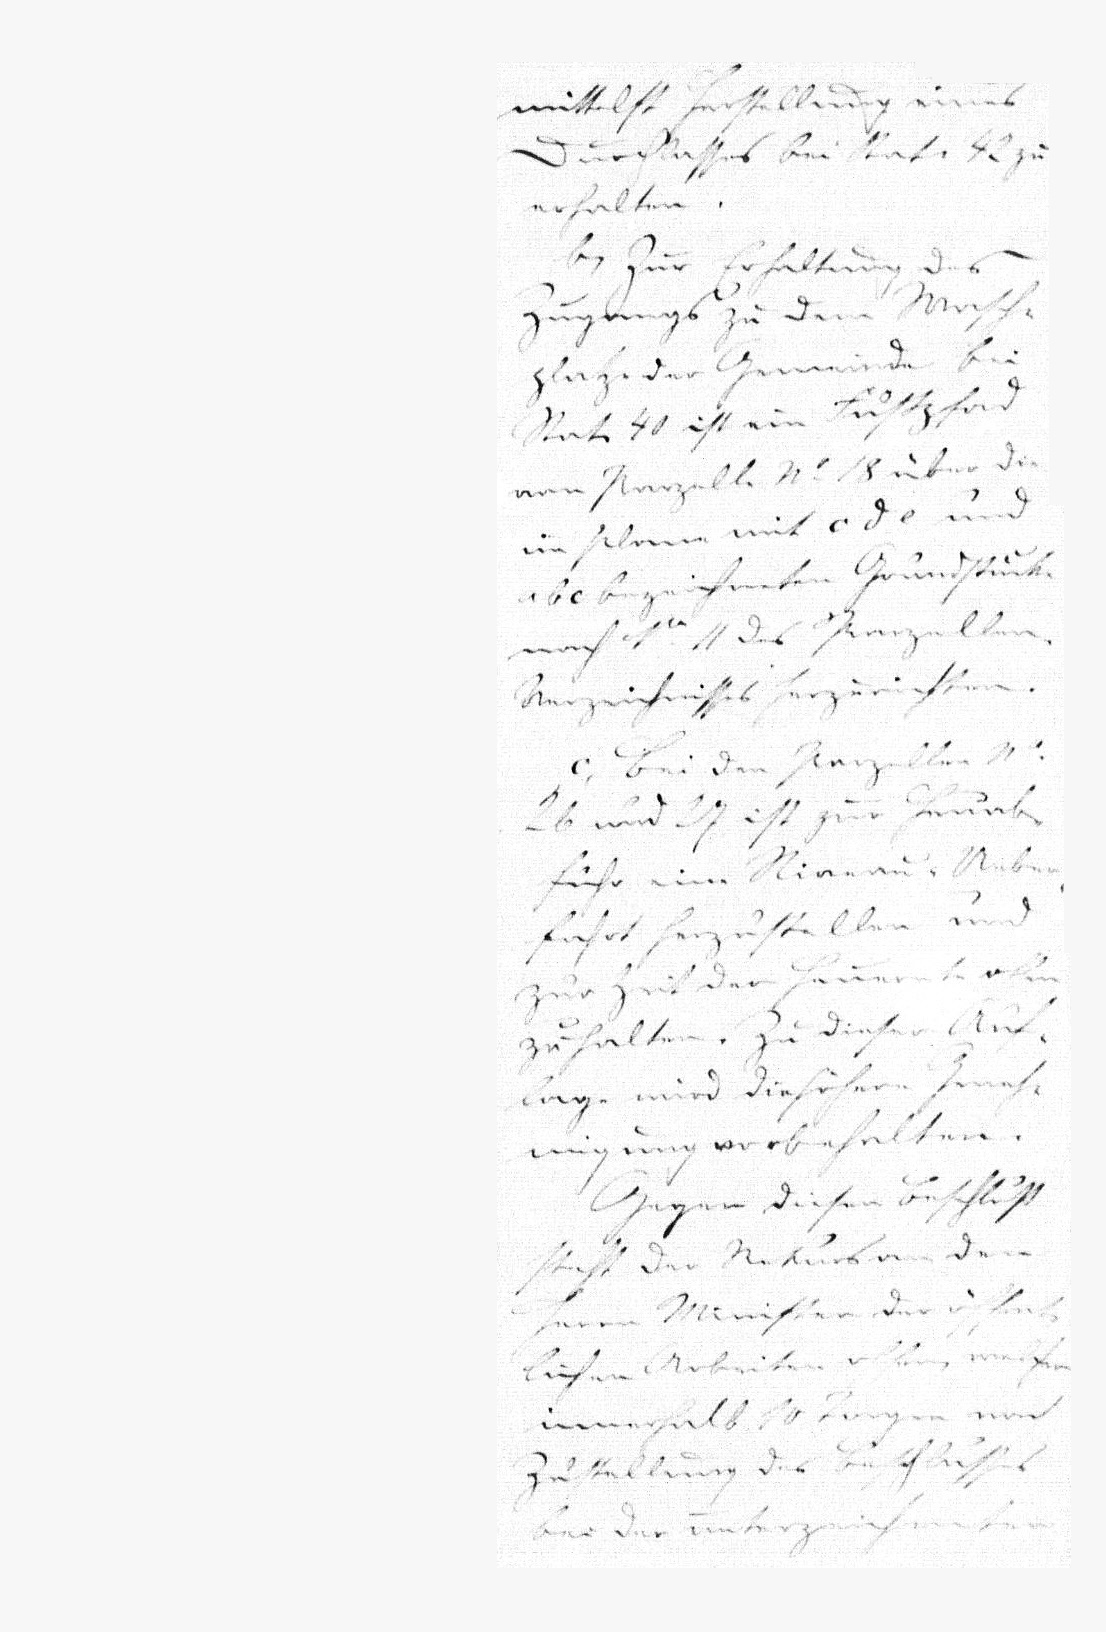 mittelst Herstellung eines
Durchlasses bei Stat. 42 zu
erhalten.
b, Zur Erhaltung des
Zugangs zu dem Wasch-
platze der Gemeinde bei
Stat. 40 ist ein Fußpfad
von Parzelle No 18 über die
im Plane mit c d e und
a b c bezeichneten Grundstücke
nach No 11 des Parzellen-
Verzeichnisses herzurichten.
c, Bei den Parzellen No.
26 und 27 ist zur Heuab-
fuhr eine Niveau-Ueber-
fahrt herzustellen und
zur Zeit der Heuernte offen
zu halten. Zu dieser Auf-
lage wird die höhere Geneh-
migung vorbehalten.
Gegen diesen Beschluß
steht der Rekurs an den
Herrn Minister der öffent-
lichen Arbeiten offen, welcher
innerhalb 10 Tagen nach
Zustellung des Beschlusses
bei der unterzeichneten